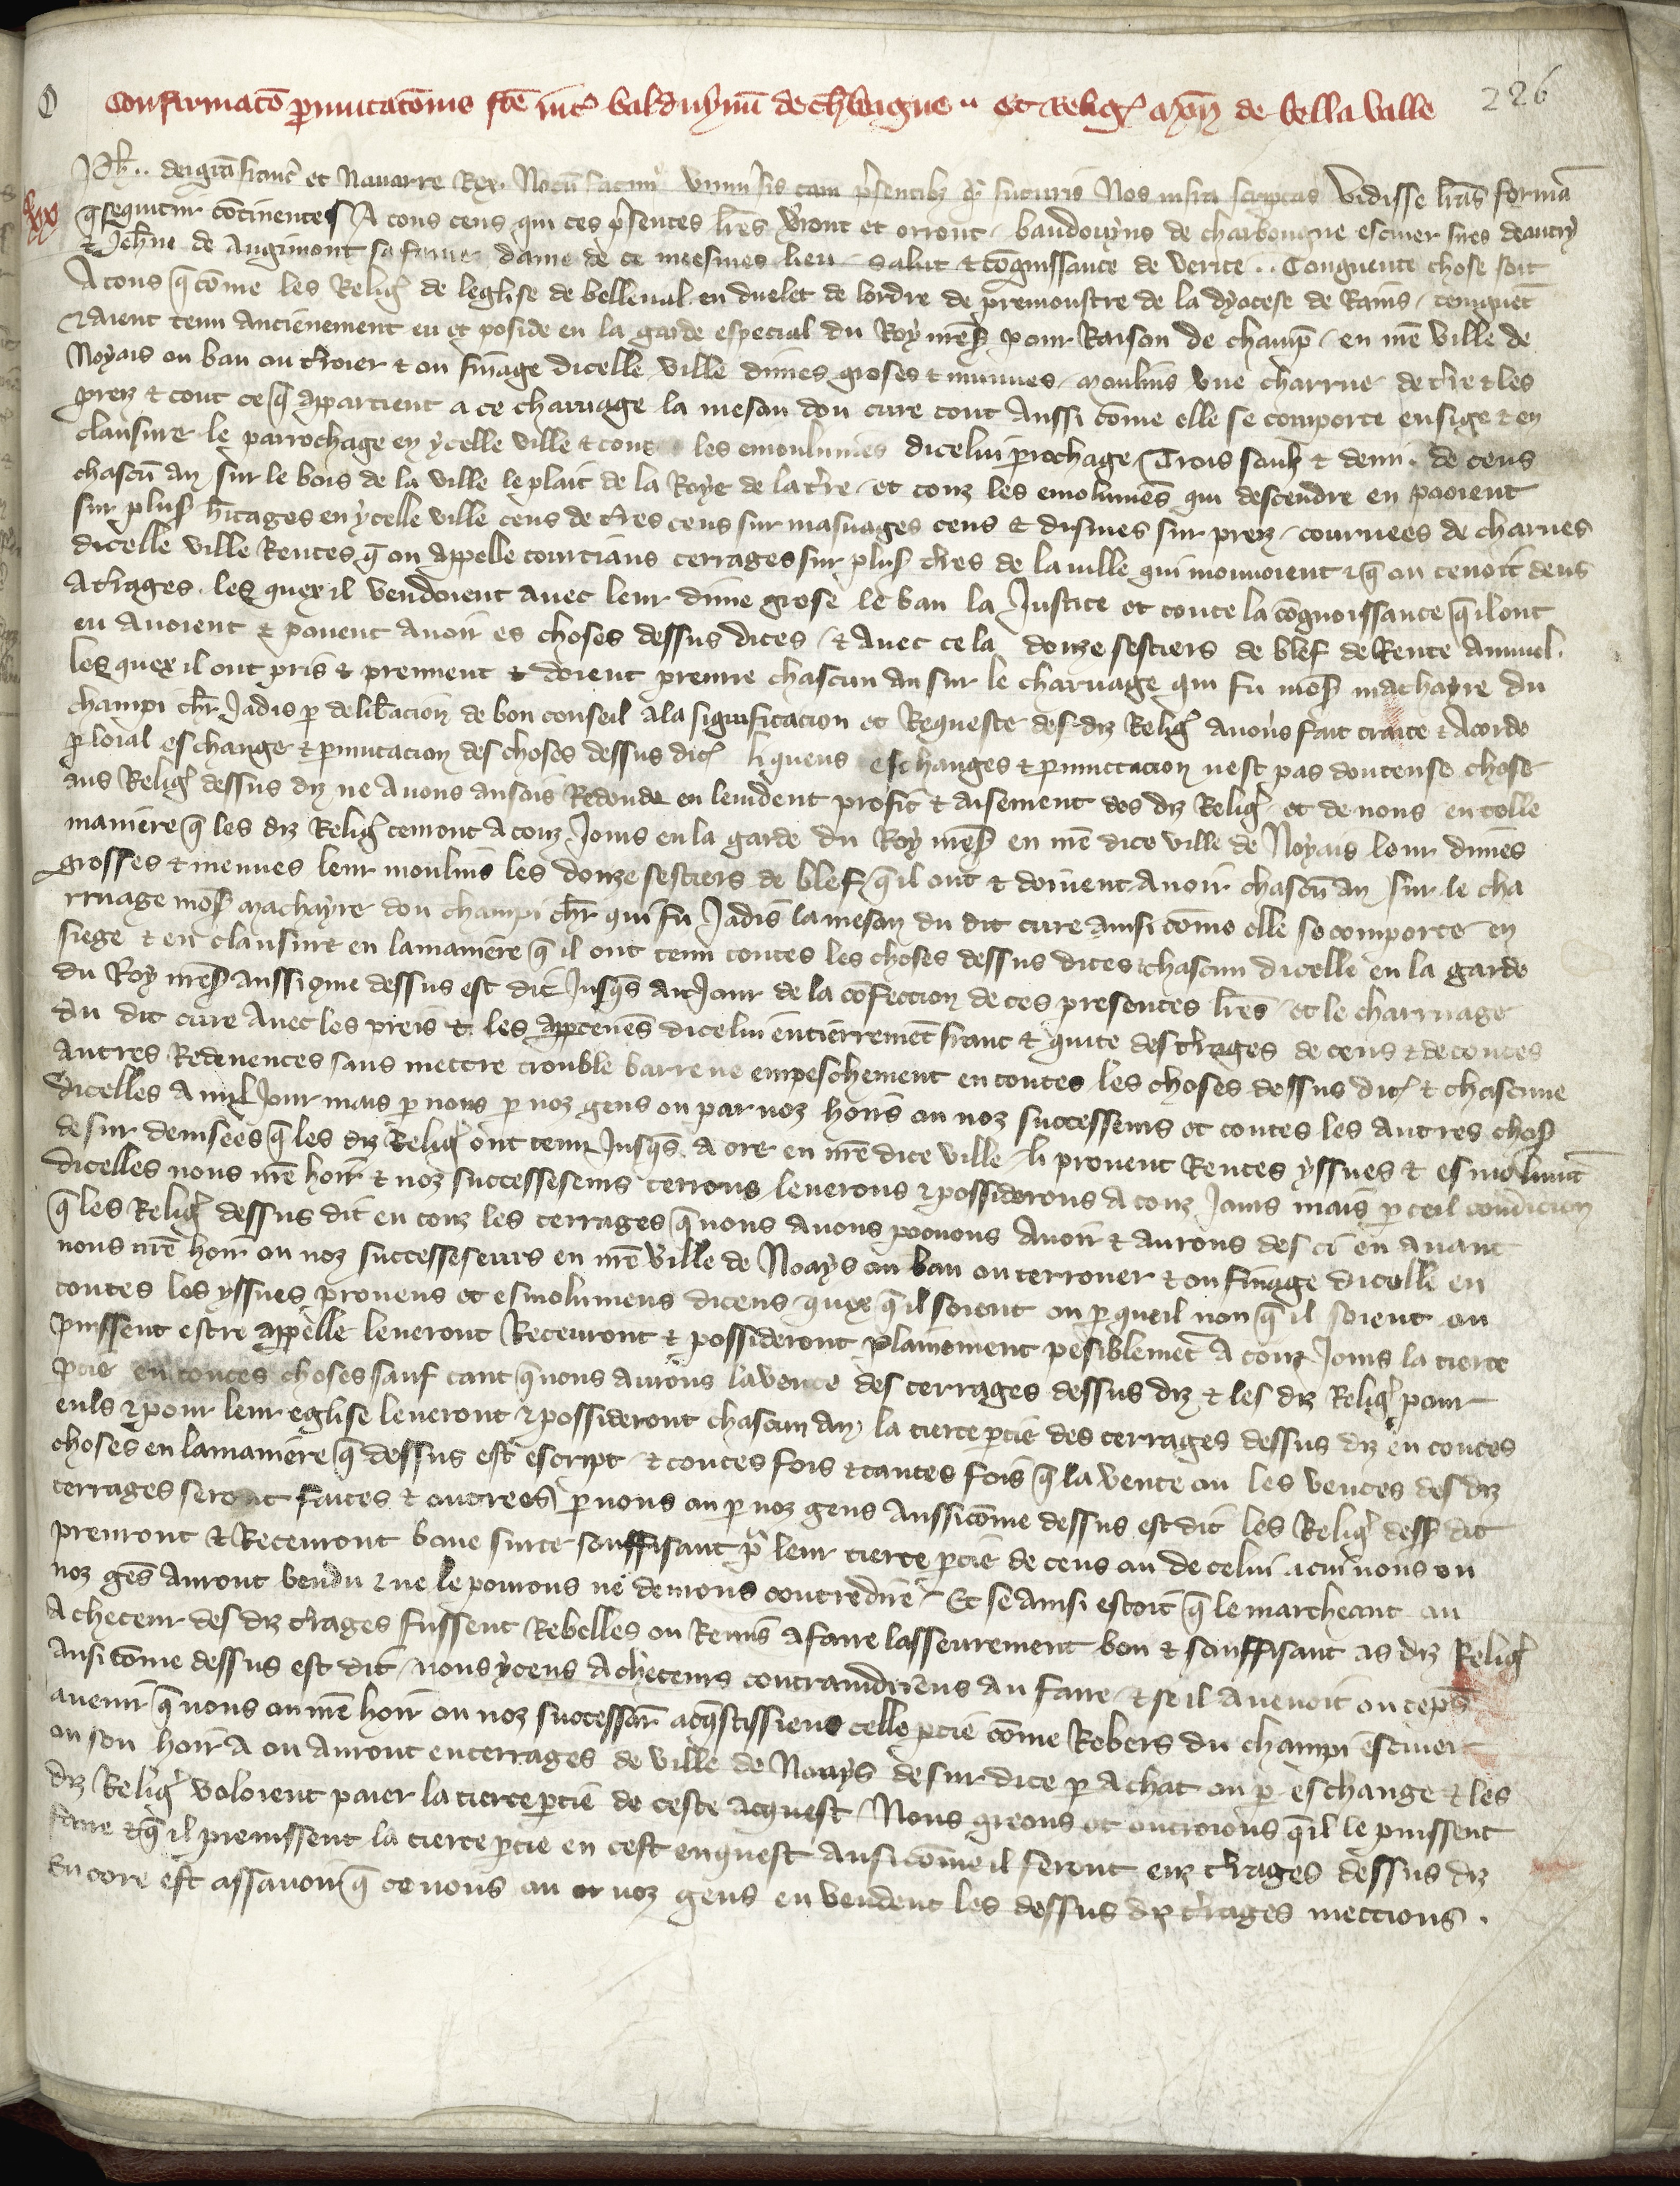 Confirmatō ꝑmutatōnis fc̄e int̾ balduynū de ch̾bgigne .. et Religꝭ de bella valle
226
Ph̄. dei gr̄a franc̾ et Nauarre Rex. Notū facim̾ vniu̾sis tam p̾sentibꝫ q̾ futuris Nos infra scriptas vidisse lr̄as formā
q̄ sequitur cōtinentes A tous ceus qui ces p̾sentes lr̄es v̾ront et orront baudouyns de charbougne escuier sires deautry
lxx
& Jeh̄ne de Augimont sa feme dame de ce meesmes lieu salut & cōgnissance de verite .. Congneute chose soit
A tous q̄ cōme les Religꝭ de leglise de belleual en duelet de lordre de premonstre de la dyocese de Rains tenguēt
& aient tenu ancienement eu et poside en la garde especial du Roy nr̄e sꝭ pour Raison de champꝭ en nr̄e ville de
Noyais ou ban ou t̾roier & ou finage dicelle ville dimes groses & menues moulins vne charrue de t̾re & les
prez & tout ce q̄ appartient a ce charuage la meson dou cure tout aussi cōme elle se comporte en sige & en
clausure le parrochage en ycelle ville & tous les emoulumēs dicelui ꝑrochage Trois soulz & demi de cens
chascū an sur le bois de la ville le plait de la Roye de la t̾re et touz les emolumēs qui descendre en pooient
sur plusꝭ h̾itages en ycelle ville cens de t̾res cens sur masuages cens & dismes sur prez couruees de charues
dicelle ville Rentes q̄ on appelle courtians terrages sur plusꝭ t̾res de la uille qui mouuoient & q̄ on tenoit deus
a t̾rages les quex il vendoient auec leur dime grose le ban la Justice et toute la cōgnoissance q̄ il ont
eu auoient & pouent auoir es choses dessus dites & auec ce la douze sestiers de blef de Rente annuel
les quex il ont pris & prennent & doient prenre chascun an sur le charuage qui fu mōsꝭ machayre du
champi chlr̄ Jadis ꝑ delib̾acion de bon conseil a la significacion et Requeste des diz Religꝭ auons fait traite & acorde
ꝑ loial eschange & ꝑmutacion des choses dessus ditꝭ li queus eschanges & ꝑmuttacion nest pas douteuse chose
aus Religꝭ dessus diz ne a nous ansois Redonde en leuident profit & aisement des diz Religꝭ et de nous en telle
maniere q̄ les diz Religꝭ tenront a touz Jours en la garde du Roy nr̄e sꝭ en nr̄e dite ville de Noyais leur dimes
grosses & menues leur moulins les douze sestiers de blef q̄ il ont & doiuent auoir chascū an sur le cha
rruage mōsꝭ machayre dou champi chlr̄ qui fu Jadis la meson du dit cure ainsi cōme elle se comporte en
siege & en clausure en la maniere q̄ il ont tenu toutes les choses dessus dites & chascun dicelle en la garde
du Roy nr̄e sꝭ aussi q̄me dessus est dit Jusq̄s au Jour de la cōfection de ces presentes lr̄es et le charruage
du dit cure auec les preis & les apꝑtenēs dicelui entierremēt franc & quite des t̾rages de cens & de toutes
autres Redeuences sans mettre trouble barre ne empeschement en toutes les choses dessus ditꝭ & chascune
dicelles A nul Jour mais ꝑ nous ꝑ noz gens ou par noz hoirs ou noz successeurs et toutes les autres chosꝭ
desur deuisees q̄ les diz Religꝭ ont tenu Jusq̄s a ore en nr̄e dite ville li prouent Rentes yssues & esmolumt̄
dicelles nous nr̄e hoir & noz successeseurs terrons leuerons & possiderons a touz Jours mais ꝑ teil condicion
q̄ les Religꝭ dessus dit en touz les terrages q̄ nous auons poouons auoir & aurons des ci en auant
nous nr̄e hoir ou noz successeseurs en nr̄e ville de Noays ou ban ou terrouer & ou finage dicelle en
toutes les yssues prouens et esmolumens diceus quex q̄ il soient ou ꝑ queil non q̄ il soient ou
puissent estre appelle leueront Receuront & possideront plainement pesiblemēt A touz Jours la tierce
ꝑtie en toutes choses sauf tant q̄ nous aurons la vente des terrages dessus diz & les diz Religꝭ pour
euls & pour leur eglise leueront & possideront chascun an la tierce ꝑtie des terrages dessus diz en toutes
choses en la maniere q̄ dessus est escript & toutes fois & tantes fois q̄ la vente ou les ventes des diz
terrages seront faites & outroees ꝑ nous ou ꝑ noz gens aussi cōme dessus est dit les Religꝭ dessꝭ dit
prenront & Receuront bone surte souffisant p̾ leur tierce ꝑtie de ceus ou de celui a cui nous ou
noz gēs auront vendu & ne le pourons ne deuons contredire Et se ainsi estoit q̄ le marcheant ou
acheteur des diz t̾rages fussent Rebelles ou Remis a faire lasseurement bon & souffisant as diz Religꝭ
ansi cōme dessus est dit nous yceus acheteurs contraindriens au faire & se il auenoit ou tēps
auenir q̄ nous ou nr̄e hoir ou noz successeur acq̄stissiens celle ꝑtie cōme Robers du champi escuier
ou son hoir a ou auront en terrages de ville de Noays desur dite ꝑ achat ou ꝑ eschange & les
diz Religꝭ voloient paier la tierce ꝑtie de ceste acquest Nous greons et outroions q̄ il le puissent
faire & q̄ il preinssent la tierce ꝑtie en cest enquest ansi cōme il feront enz t̾rages dessus diz
Encore est assauoir q̄ ce nous ou noz gens en vendent les dessus diz t̾rages mettions.